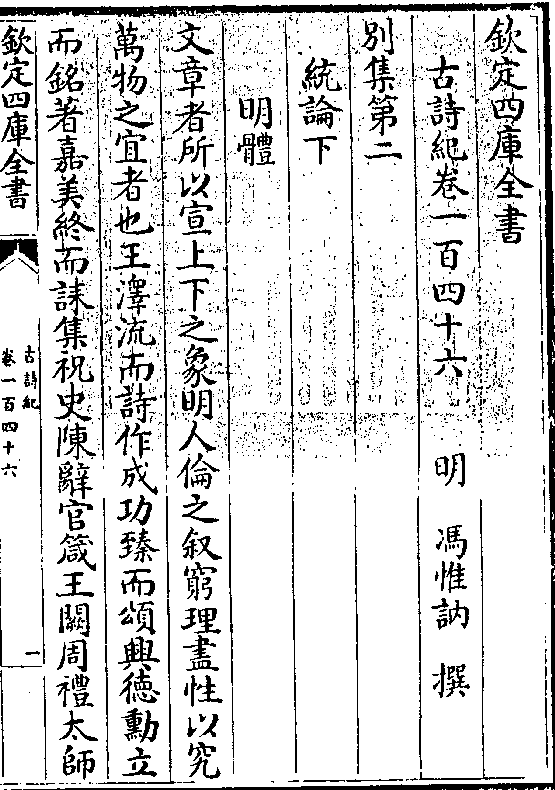 欽定四庫全書
古詩紀卷一百四十六　明　馮惟訥　撰
別集第二
統論下
明體
文章者所以宣上下之象明人倫之叙窮理盡性以究
萬物之宜者也王澤流而詩作成功臻而頌興德勳立
而銘著嘉美終而誄集祝史陳辭官箴王闕周禮太師
欽定四庫全書
古詩紀
卷一百四十六
一